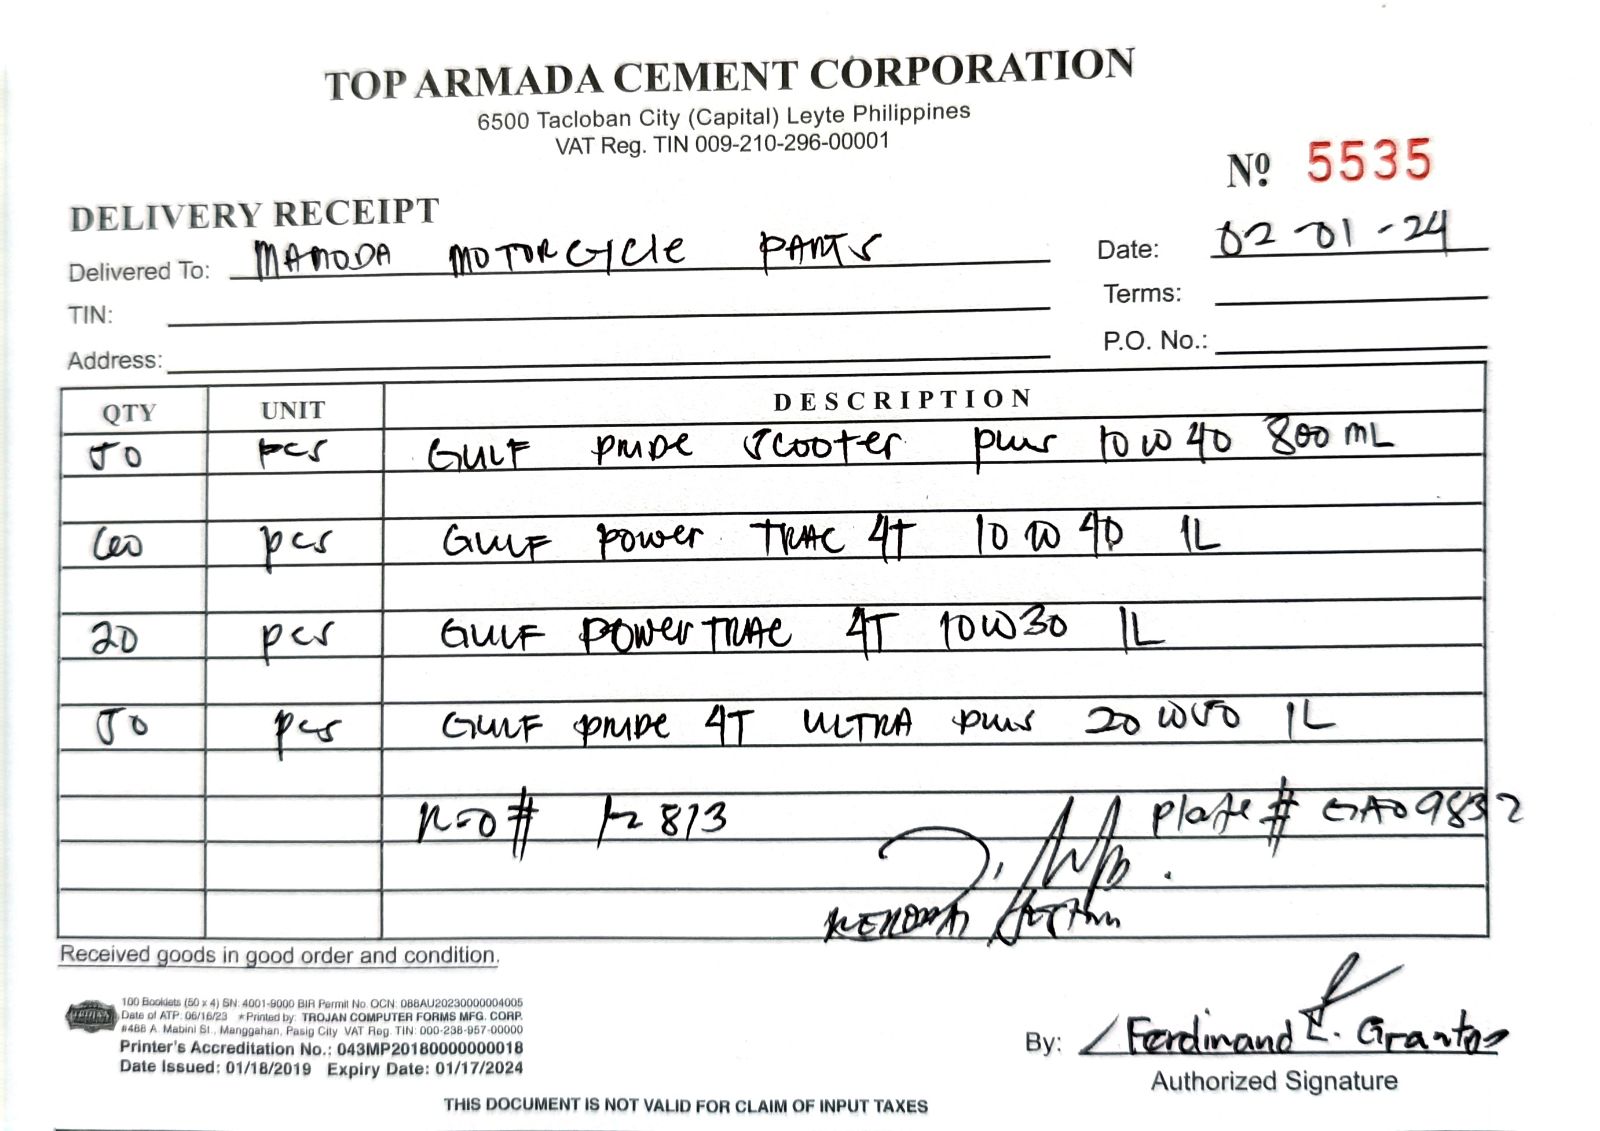 TOP ARMADA CEMENT CORPORATION
6500 Tacloban City (Capital) Leyte Philippines
VAT Reg. TIN 009-210-296-00001
Nº 5535
DELIVERY RECEIPT
Delivered To: MAMODA MOTORCYCLE PARTS
Date: 02-01-24
TIN:
Terms:
Address:
P.O. No.:
QTY UNIT DESCRIPTION
50 pcs GULF PRIDE SCOOTER plus 10W40 800mL
60 pcs GULF power TRAC 4T 10W40 1L
20 pcs GULF POWER TRAC 4T 10W30 1L
50 pcs GULF PRIDE 4T ULTRA plus 20W50 1L
# 12813 plate # GAO 9832
Received goods in good order and condition.
100 Booklets (50 x 4) SN: 4001-9000 BIR Permit No. OCN: 088AU20230000004005
Date of ATP: 06/16/23 *Printed by: TROJAN COMPUTER FORMS MFG. CORP.
#488 A. Mabini St., Manggahan, Pasig City VAT Reg. TIN: 000-238-957-00000
Printer's Accreditation No.: 043MP20180000000018
Date Issued: 01/18/2019 Expiry Date: 01/17/2024
By: Ferdinand E. Grantos
Authorized Signature
THIS DOCUMENT IS NOT VALID FOR CLAIM OF INPUT TAXES